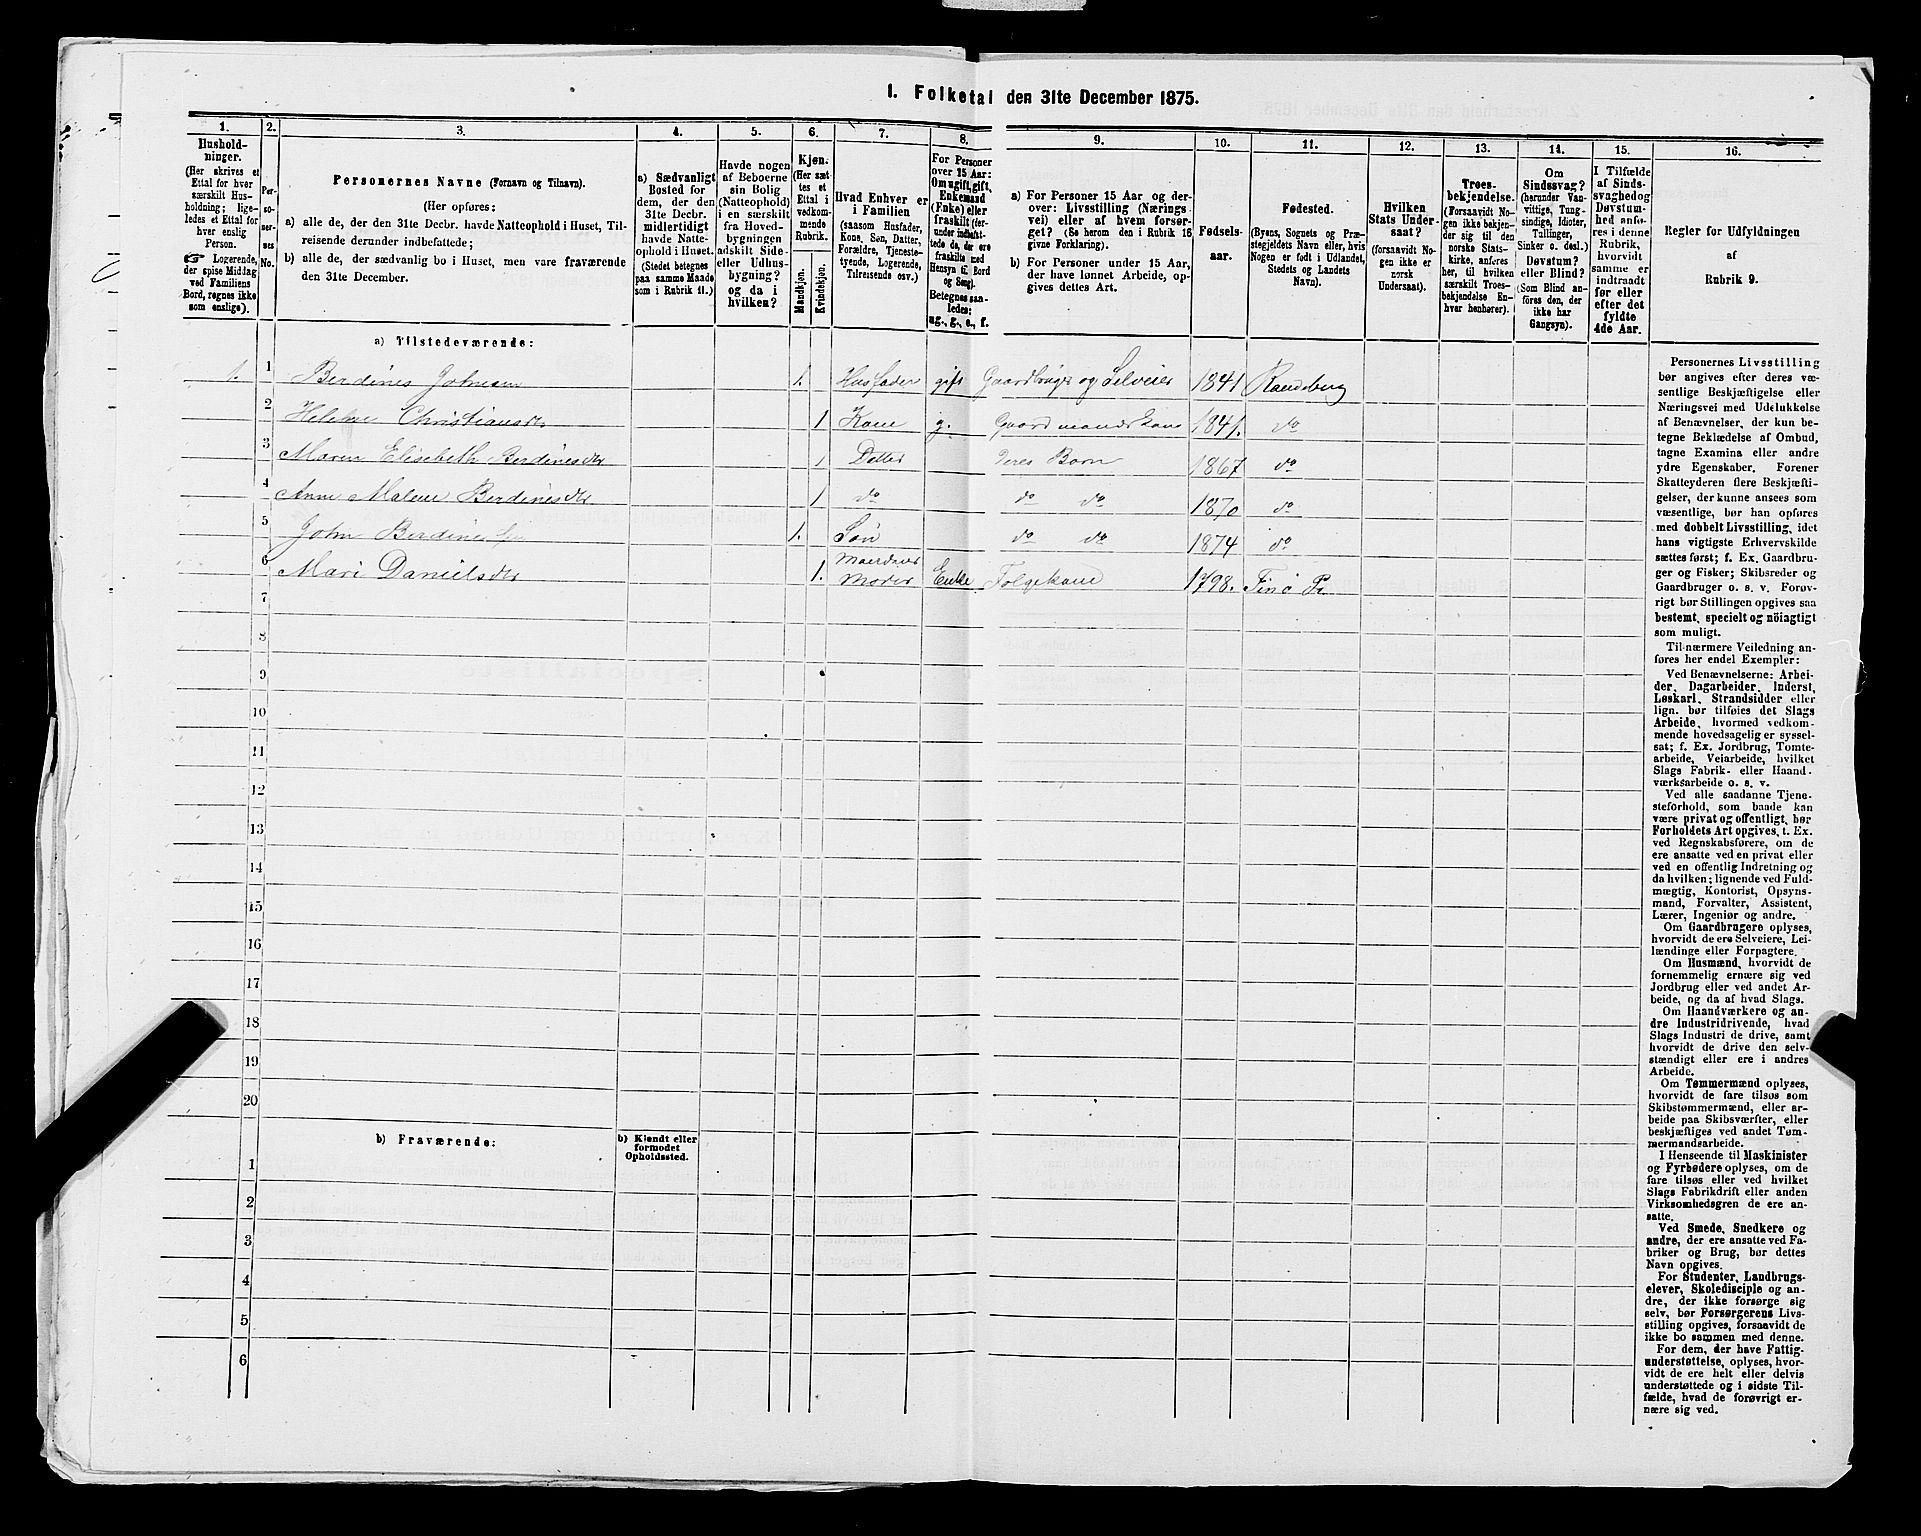 I. Folketal den 31te December 1875.
1. 2. 3. 4. 5. 6. 7. 8. 9. 10. 11. 12. 13. 14. 15. 16.
Hushold-
ninger.
(Her skrives et
Ettal for hver
særskilt Hus-
holdning; lige-
ledes et Ettal for
hver enslig
Person.
☞ Logerende,
der spise Middag
ved Familiens
Bord, regnes ikke
som enslige).
Per-
so-
ner-
nes
No.
Personernes Navne (Fornavn og Tilnavn).
(Her opføres:
a) alle de, der den 31te Decbr. havde Natteophold i Huset, Til-
reisende derunder indbefattede;
b) alle de, der sædvanlig bo i Huset, men vare fraværende
den 31te December.
a) Sædvanligt
Bosted for
dem, der den
31te Decbr.
midlertidigt
havde Natte-
ophold i Huset.
(Stedet betegnes
paa samme Maade
som i Rubrik 11.)
Havde nogen
af Beboerne
sin Bolig
(Natteophold)
i en særskilt
fra Hoved-
bygningen
adskilt Side-
eller Udhus-
bygning?
og da i
hvilken?
Kjøn.
(Her sæt-
tes et
Ettal i
vedkom-
mende
Rubrik.
Mandkjøn.
Kvindekjøn.
Hvad Enhver er
i Familien
(saasom Husfader,
Kone, Søn, Datter,
Forældre, Tjeneste-
tyende, Logerende,
Tilreisende osv.)
For Personer
over 15 Aar:
Om ugift, gift,
Enkemand
(Enke) eller
fraskilt (der-
under indbefat-
tede de, der ere
fraskilte med
Hensyn til Bord
og Seng).
Betegnes saa-
ledes:
ug., g., e., f.
a) For Personer 15 Aar og der-
over: Livsstilling (Nærings-
vei) eller af hvem forsør-
get? (Se herom den i Rubrik 16
givne Forklaring).
b) For Personer under 15 Aar,
der have lønnet Arbeide, op-
gives dettes Art.
Fødsels-
aar.
Fødested.
(Byens, Sognets og Præ-
stegjeldets Navn eller, hvis
Nogen er født i Udlandet,
Stedets og Landets
Navn).
Hvilken
Stats Under-
saat?
(forsaavidt No-
gen ikke er
norsk
Undersaat).
Troes-
bekjendelse.
(Forsaavidt No-
gen ikke bekjen-
der sig til den
norske Stats-
kirke, anføres
her, til hvilken
særskilt Troes-
bekjendelse En-
hver henhører).
Om
Sindssvag?
(herunder Van-
vittige, Tung-
sindige, Idioter,
Tullinger,
Sinker o. desl.)
Døvstum?
eller Blind?
(Som Blind an-
føres den, der
ikke har
Gangsyn).
I Tilfælde
af Sinds-
svaghed og
Døvstum-
hed anfø-
res i denne
Rubrik,
hvorvidt
samme er
indtraadt
før eller
efter det
fyldte
4de Aar.
Regler for Udfyldningen
af
Rubrik 9.
a) Tilstedeværende:
1. 1 Berdines Johnsen 1. Husfader gift Gaardbruger og Selveier 1841 Randeberg
2 Helene Christiansdr 1 Kone g. Gaardmandskone 1841. do
3 Maren Elisebeth Berdinesdr 1 Datter Deres Barn 1867 do
4 Anne Malene Berdinesdr 1 do do do 1870 do
5 John Berdines 1. Søn do do 1874 do
6 Mari Danielsdr 1. Moder Enke Folgekone 1798. Finø P.
7
8
9
10
11
12
13
14
15
16
17
18
19
20
b) Fraværende:
b) Kjendt eller
formodet
Opholdssted.
1
2
3
4
5
6
Personernes Livsstilling
bør angives efter deres væ-
sentlige Beskjæftigelse eller
Næringsvei med Udelukkelse
af Benævnelser, der kun be-
tegne Beklædelse af Ombud,
tagne Examina eller andre
ydre Egenskaber. Forener
Skatteyderen flere Beskjæfti-
gelser, der kunne ansees som
væsentlige, bør han opføres
med dobbelt Livsstilling, idet
hans vigtigste Erhvervskilde
sættes først; f. Ex. Gaardbru-
ger og Fisker; Skibsreder og
Gaardbruger o. s. v. Forøv-
rigt bør Stillingen opgives saa
bestemt, specielt og nöiagtigt
som muligt.
Til nærmere Veiledning an-
føres her endel Exempler:
Ved Benævnelserne: Arbei-
der, Dagarbeider, Inderst,
Løskarl, Strandsidder eller
lign. bør tilføies det Slags
Arbeide, hvormed vedkom-
mende hovedsagelig er syssel-
sat; f. Ex. Jordbrug, Tomte-
arbeide, Veiarbeide, hvilket
Slags Fabrik- eller Haand-
værksarbeide o. s. v.
Ved alle saadanne Tjene-
steforhold, som baade kan
være privat og offentligt, bør
Forholdets Art opgives, t. Ex.
ved Regnskabsførere, om de
ere ansatte ved en privat eller
ved en offentlig Indretning og
da hvilken; lignende ved Fuld-
mægtig, Kontorist, Opsyns-
mand, Forvalter, Assistent,
Lærer, Ingeniør og andre.
Om Gaardbrugere oplyses,
hvorvidt de ere Selveiere, Lei-
lændinge eller Forpagtere.
Om Husmænd, hvorvidt de
fornemmelig ernære sig ved
Jordbrug eller ved andet Ar-
beide, og da af hvad Slags.
Om Haandværkere og an-
dre Industridrivende, hvad
Slags Industri de drive, samt
hvorvidt de drive den selv-
stændigt eller ere i andres
Arbeide.
Om Tømmermænd oplyses,
hvorvidt de fare tilsøs som
Skibstømmermænd, eller ar-
beide paa Skibsværfter, eller
beskjæftiges ved andet Tøm-
mermandsarbeide.
I Henseende til Maskinister
og Fyrbødere oplyses, om de
fare tilsøs eller ved hvilket
Slags Fabrikdrift eller anden
Virksomhedsgren de ere an-
satte.
Ved Smede, Snedkere og
andre, der ere ansatte ved Fa-
briker og Brug, bør dettes
Navn opgives.
For Studenter, Landbrugs-
elever, Skoledisciple og an-
dre, der ikke forsørge sig
selv, bør Forsørgerens Livs-
stilling opgives, forsaavidt de
ikke bo sammen med denne.
For dem, der have Fattig-
understøttelse, oplyses, hvor-
vidt de ere helt eller delvis
understøttede og i sidste Til-
fælde, hvad de forøvrigt er-
nære sig ved.